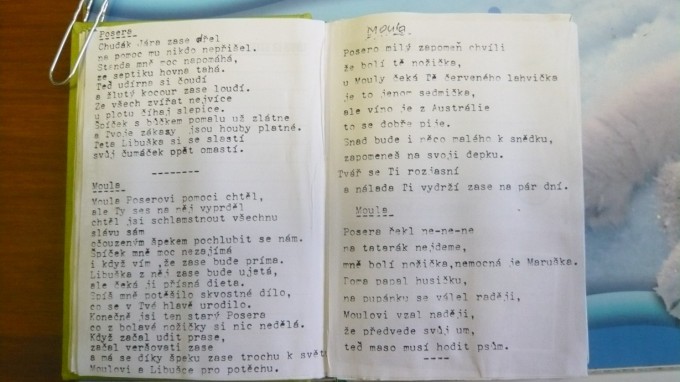 Posera
Chudák Jára zase dřel
na pomoc mu nikdo nepřišel.
Standa mně moc napomáhá,
ze septiku hovna tahá.
Teď udírna si čoudí
a žlutý kocour zase loudí.
Ze všech zvířat nejvíce
u plotu číhaj slepice.
Špíček s bůčkem pomalu už zlátne
a Tvoje zákazy jsou houby platné.
Teta Libuška si se slastí
svůj čumáček opět omastí.
--------
Moula
Moula Poserovi pomoci chtěl,
ale Ty ses na něj vyprděl
chtěl jsi schlamstnout všechnu
slávu sám
očouzeným špekem pochlubit se nám.
Špíček mně moc nezajímá
i když vím ,že zase bude príma.
Libuška z něj zase bude ujetá,
ale čeká ji přísná dieta.
Spíš mně potěšilo skvostné dílo,
co se v Tvé hlavě urodilo.
Konečně jsi ten starý Posera
co z bolavé nožičky si nic nedělá.
Když začal udit prase,
začal veršovati zase
a má se díky špeku zase trochu k světu
Moulovi a Libušce pro potěchu.
Moula
Posero milý zapomeň chvíli
že bolí tě nožička,
u Mouly čeká Tě červeného lahvička
je to jenom sedmička,
ale víno je z Austrálie
to se dobře pije.
Snad bude i něco malého k snědku,
zapomeneš na svoji depku.
Tvář se Ti rozjasní
a nálada Ti vydrží zase na pár dní.
Moula
Posera čekl ne-ne-ne
na tatarák nejdeme,
mně bolí nožička,nemocná je Maruška.
Doma papal husičku,
na pupánku se válel raději,
Moulovi vzal naději,
že předvede svůj um,
teď maso musí hodit psům.
----